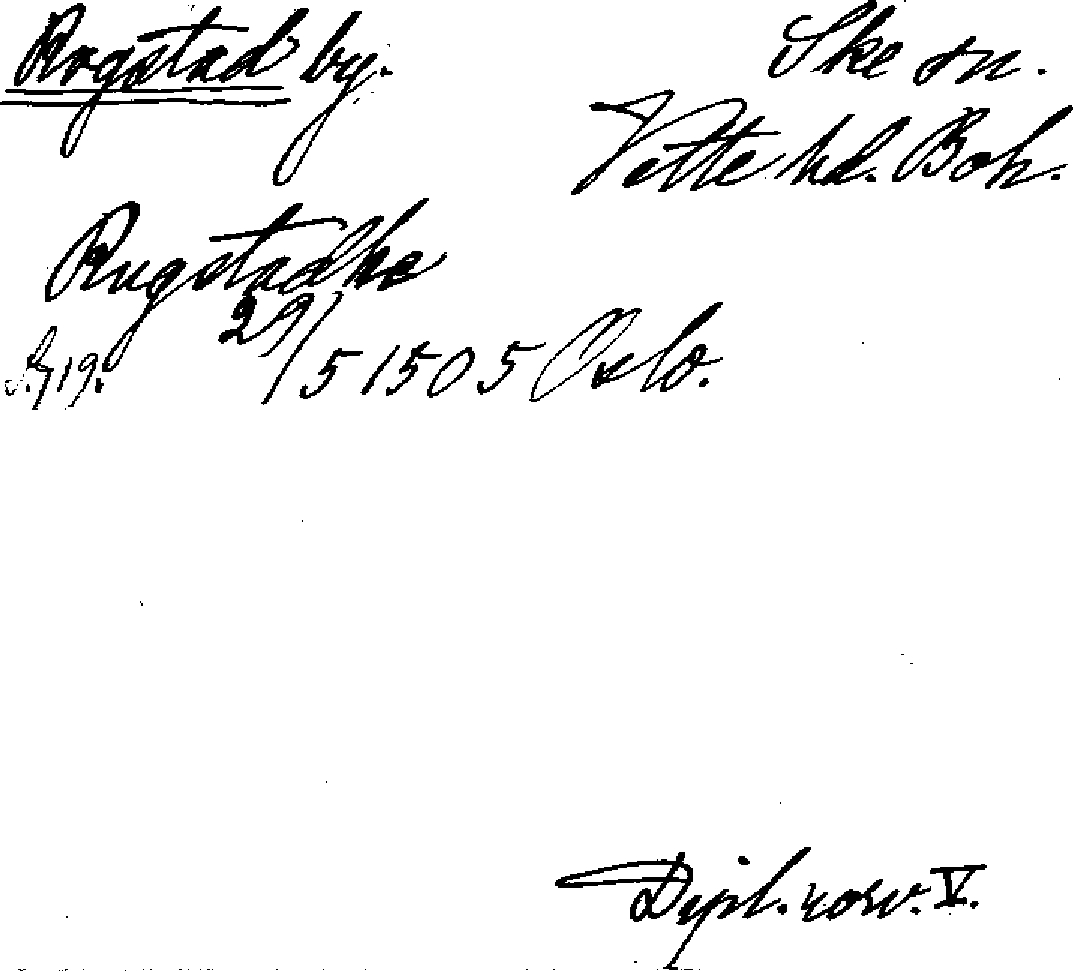 Rogstad by.
Ske sn.
Vette hd. Boh.
Rugstadhe
29/5 1505 Oslo.
s. 719.
Dipl. norv. V.